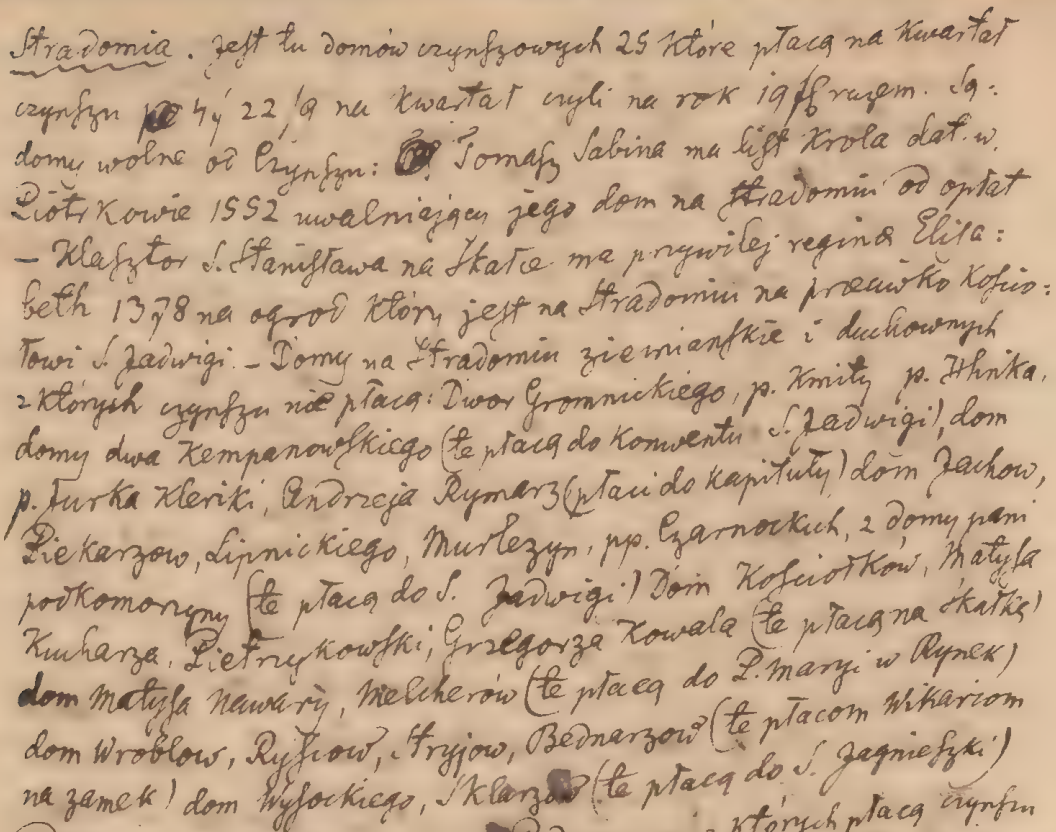 Stradomia. Jest tu domów czynszowych 25 które płacą na kwartał
czynszu po 4γ 22/9 na kwartał czyli na rok 19 razem. Są:
domy wolne od Czynszu: Tomasz Sabina ma list Krola dat. w.
Piotrkowie 1552 uwalniający jego dom na Stradomiu od opłat
– Klasztor S. Stanisława na Skałce ma przywilej regina Elisa:
beth 1378 na ogrod który jest na Stradomiu na przeciwko Kościo:
łowi S. Jadwigi. – Domy na Stradomiu ziemianskie i duchownych
z których czynszu nie płacą: Dwor Gromnickiego, p. Kmity p. Hlinka,
domy dwa Kempanowskiego (te płacą do Konwentu S. Jadwigi), dom
p. Jurka Kleriki, Andrzeja Rymarz (płaci do Kapituły) dom Jachow,
Piekarzow, Lipnickiego, Murłezyn, pp. Czarnockich, 2 domy pani
podkomorzyny (te płacą do S. Jadwigi) Dom Kościołków, Matysa
Kucharza, Pietrzykowski, Grzegorza Kowala (te płacą na Skałkę)
dom Matysa Nawary, Melcherów (te płacą do P. Maryi w Rynek)
dom Wroblow, Rysiow, Stryjow, Bednarzow (te płacom Wikariom
na zamek) dom Wysockiego, Sklarzów (te płacą do S. Jagnieszki)
których płacą czynszu